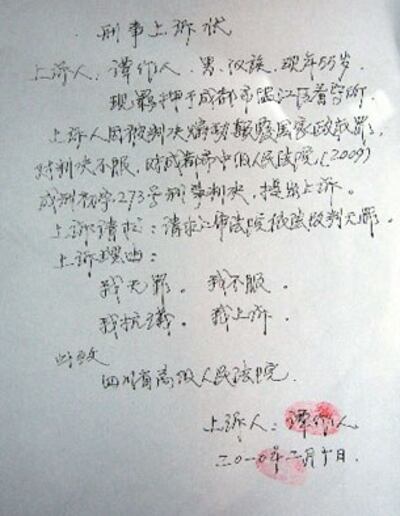 刑事上诉状
上诉人：谭作人，男，汉族，现年55岁，
现羁押于成都市温江区看守所。
上诉人因被判决煽动颠覆国家政权罪，
对判决不服，对成都市中级人民法院（2009）
成刑初字273号刑事判决，提出上诉。
上诉请求：请求上师法院依法改判无罪。
上诉理由：
我无罪。我不服。
我抗议。我上诉。
此致
四川省高级人民法院
上诉人：谭作人
二〇一〇年二月十日